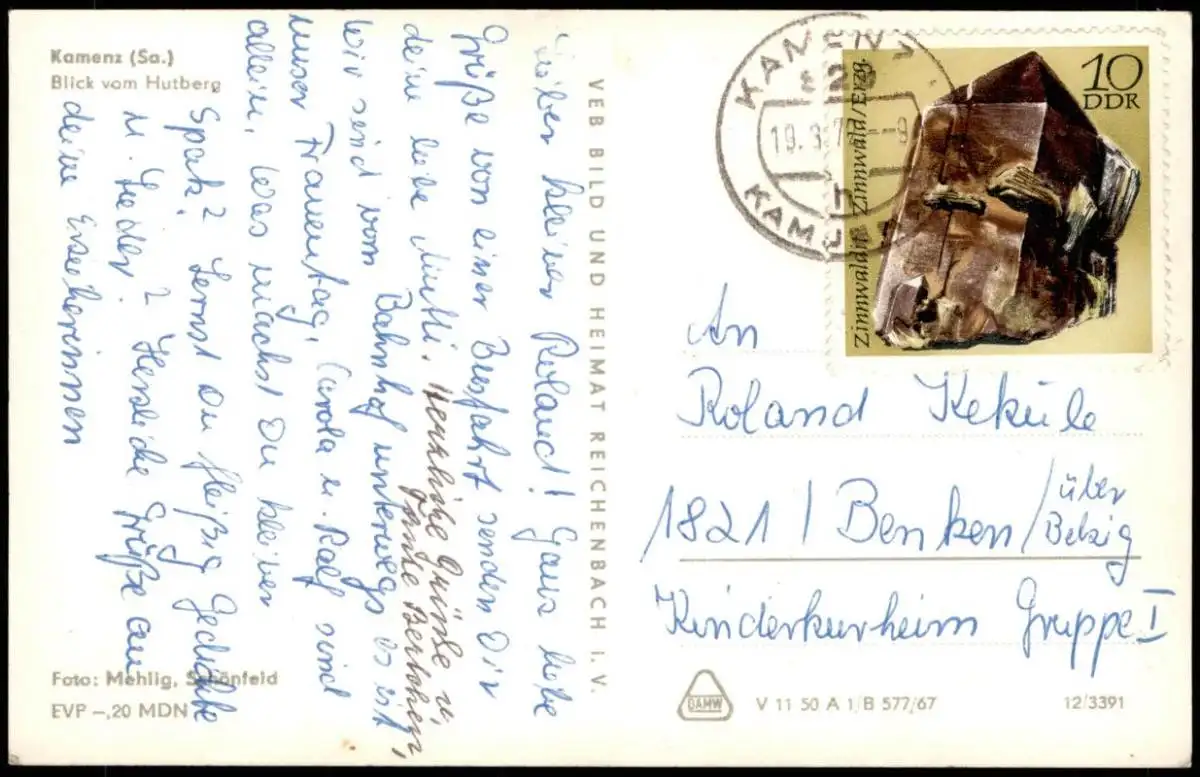 Kamenz (Sa.)
Blick vom Hutberg
Lieber kleiner Roland! Ganz liebe
Grüße von einer Busfahrt senden Dir
deine liebe Mutti. Herzliche Grüße u.
Tante
wir sind vom Bahnhof unterwegs es ist
unser Frauentag, Carola u. Ralf sind
allein. Was machst Du kleiner
Spatz? Lernst du fleißig Gedichte
u. Lieder? Herzliche Grüße an
deine Erzieherinnen
Foto: Mehlig, Schönfeld
EVP –,20 MDN
VEB BILD UND HEIMAT REICHENBACH I. V.
KAMENZ 1
19.3.7 -8
KAM
10
DDR
Zinnwaldit Zinnwald/Erzg.
An
Roland Kekule
1821 / Benken / über
Belzig
Kinderkurheim Gruppe I
DAMW
V 11 50 A 1/B 577/67
12/3391